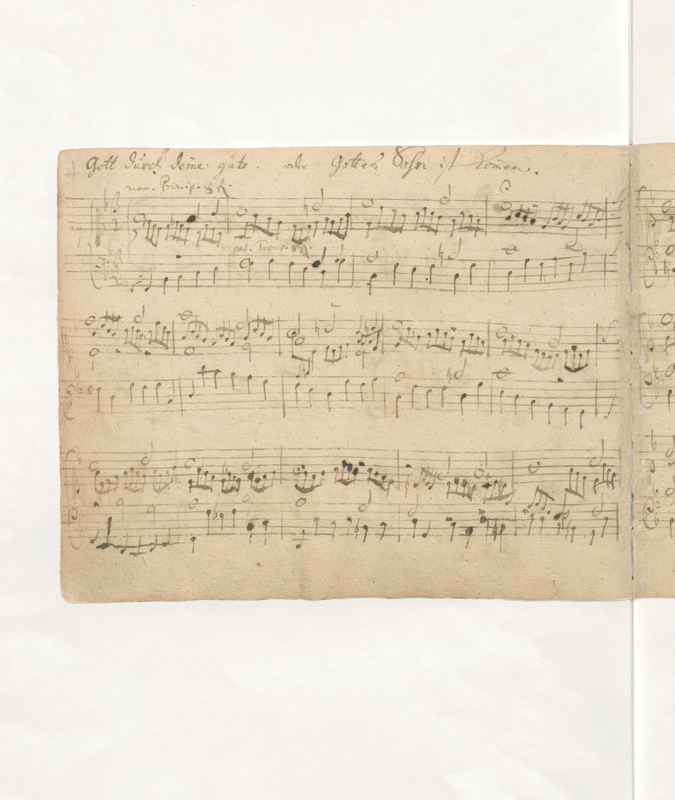 Gott durch deine güte. oder Gottes Sohn ist Kom̄en.
man. Princip. 8 F.
ped. Tromp. 8 F.